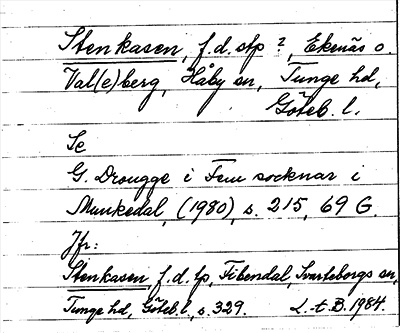 Stenkasen, f.d. stp ?, Ekenäs o.
Val(e)berg, Håby sn, Tunge hd,
Göteb. l.
Se
G. Drougge i Fem socknar i
Munkedal, (1980), s. 215, 69 G.
Jfr:
Stenkasen, f.d. tp, Fibendal, Svartebergs sn,
Tunge hd, Göteb. l, s. 329. L.t.B. 1984.